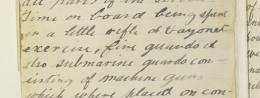 all parts of the
Time on board being spent
on a little rifle & bayonet
exercise, fire guards &
also submarine guards con-
sisting of machine guns
which where placed on con-